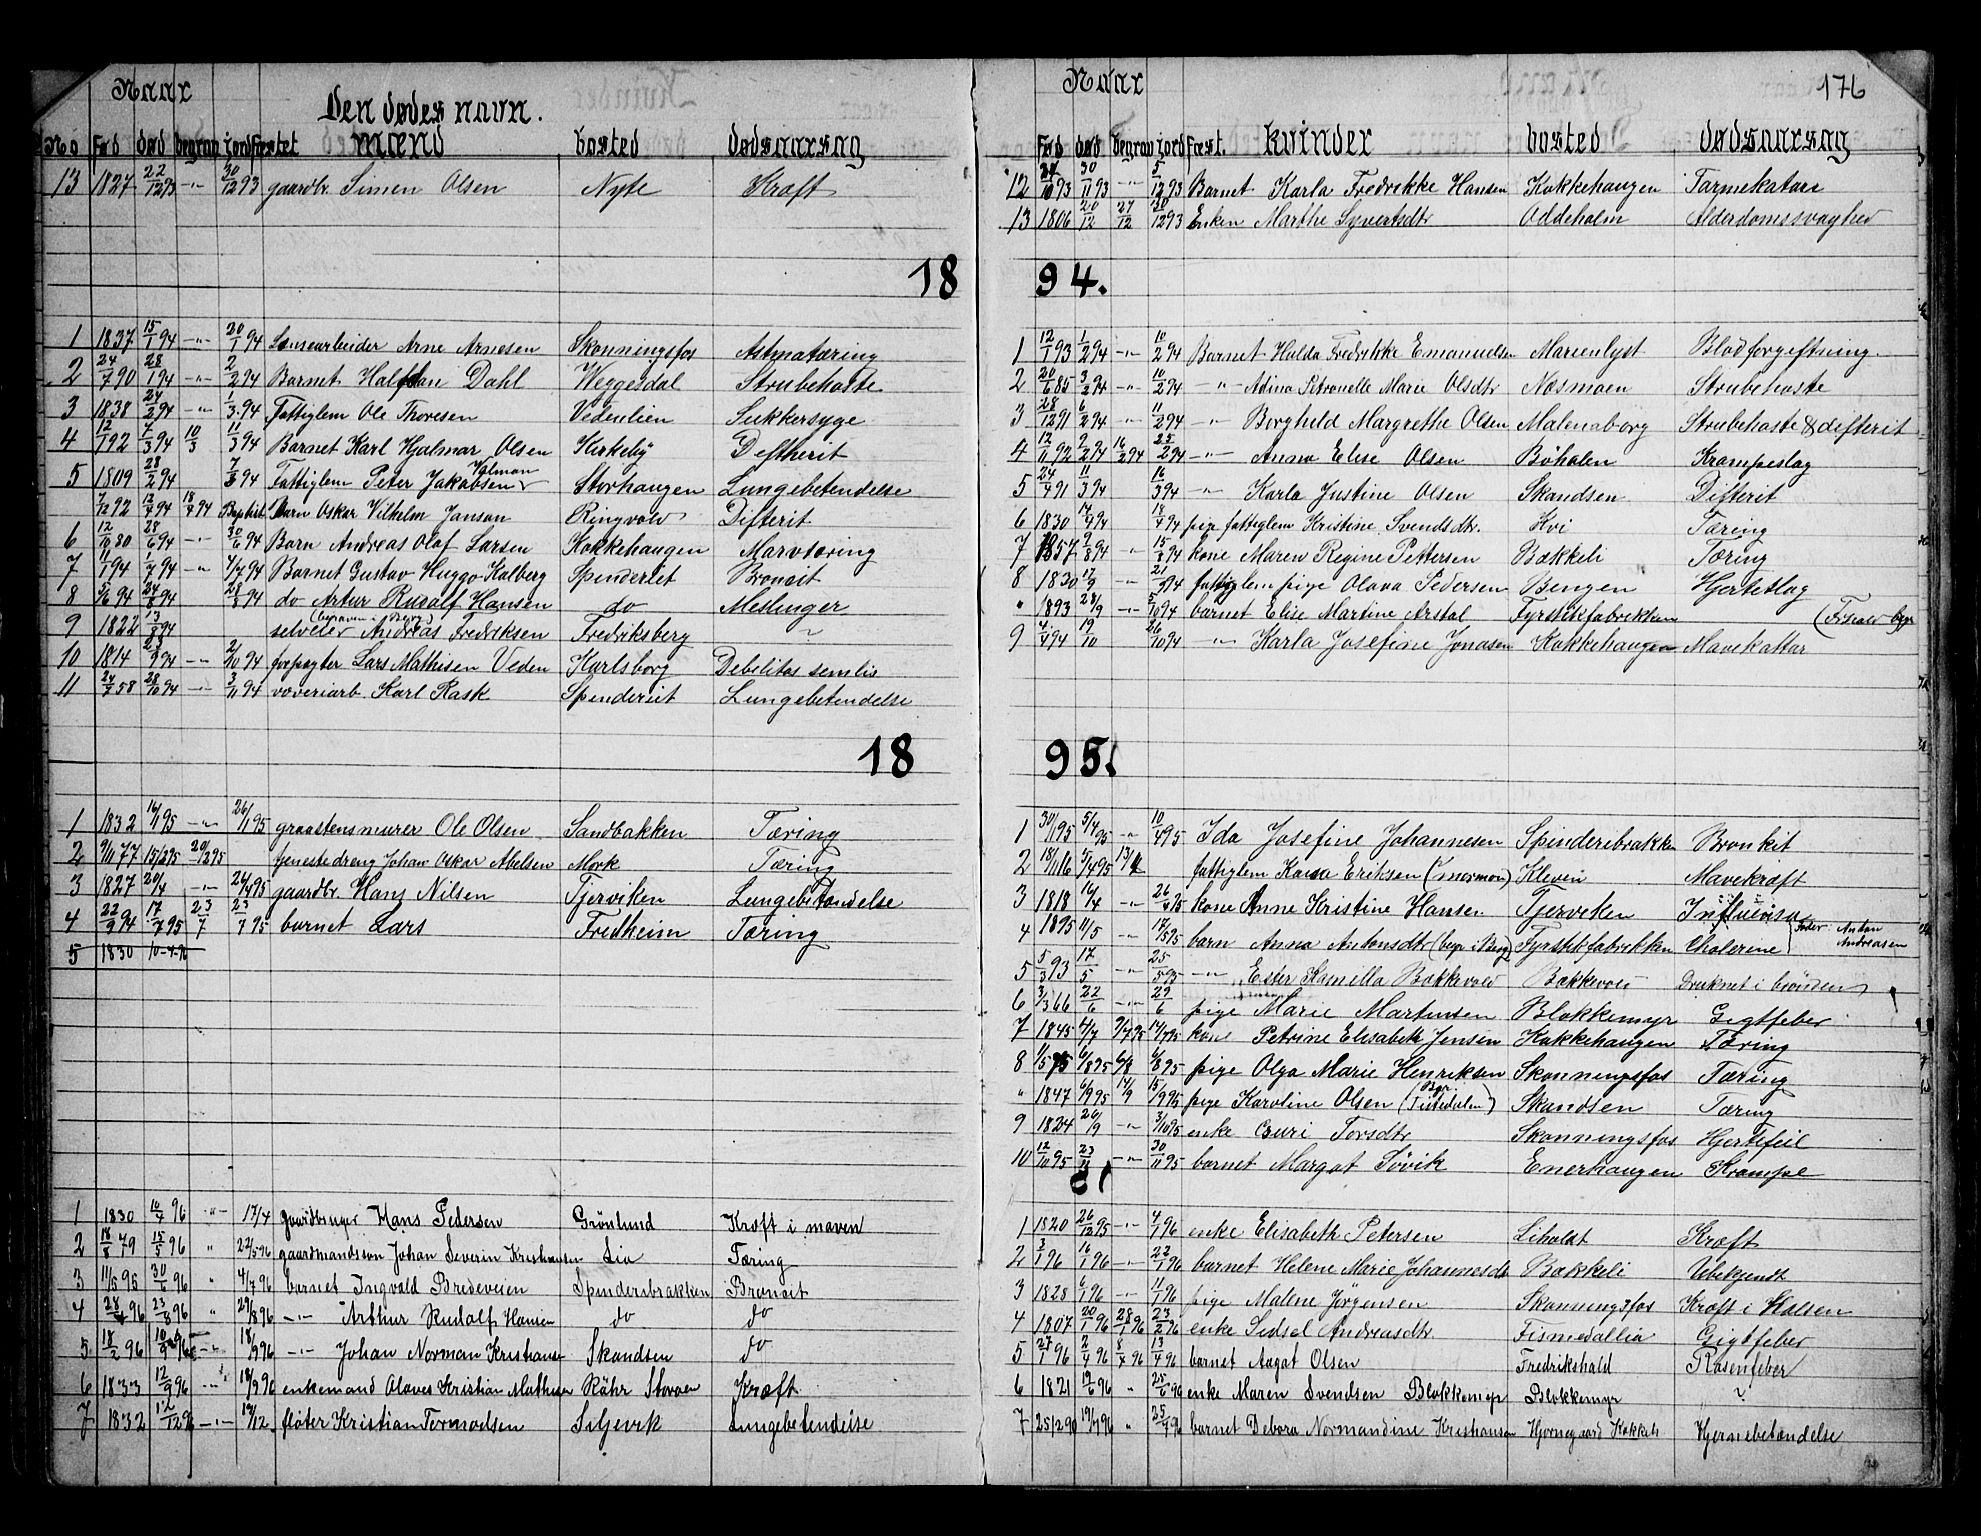 Naar
Den dødes navn.
No fød død begrav jordfæstet mænd bosted dødsaarsag
13 1827 22/12 93 -"- 30/12 93 gaardbr. Simen Olsen Nyte Kræft
18
1 1837 15/1 94 -"- 20/1 94 Lensearbeider Arne Arnesen Skonningsfos Astmatæring
2 24/7 90 28/1 94 -"- 2/2 94 Barnet Halfdan Dahl Weggesdal Strubehoste
3 1838 24/2 94 -"- 1/3 94 Fattiglem Ole Thoresen Vedenlien Sukkersyge
4 12/1 92 4/3 94 10/3 11/3 94 Barnet Karl Hjalmar Olsen Kirkeby Deftherit
5 1809 28/2 94 7/3 94 Fattiglem Peter Jakobsen Holman Storhaugen Lungebetendelse
7/12 92 12/4 94 18/4 94 Baptist Barn Oskar Vilhelm Janson Ringvold Difterit
6 12/10 80 28/6 94 -"- 30/6 94 Barn Andreas Olaf Larsen Kokkehaugen Marvtæring
7 11/1 94 /7 94 -"- 4/7 94 Barnet Gustav Huggo Kalberg Spenderiet Bronsit
8 3/6 94 24/8 94 28/8 94 do Artur Rudolf Hansen do Meslinger
9 1822 13/8 94 selveier Andreas Fredriksen (begraven i Berg) Fredriksberg "
10 1814 23/9 94 -"- 2/10 94 forpagter Lars Mathisen Veden Karlsborg Debelitas senilis
11 24/2 58 28/10 94 -"- 3/11 94 væveriarb. Karl Rask Spenderiet Lungebetendelse
18
1 1832 16/1 95 -"- 26/1 95 graastensmurer Ole Olsen Sandbakken Tæring
2 9/11 77 15/2 95 20/2 95 tjenestedreng Johan Oskar Abelsen Mork Tæring
3 1827 20/4 -"- 26/4 95 gaardbr. Hans Nilsen Tjerviken Lungebetendelse
4 22/9 94 17/7 95 23/7 23/7 95 barnet Lars Fredheim Tæring
5 1830 10-4-96
1 1830 10/4 96 -"- 17/4 gaardbruger Hans Pedersen Grönlund Kræft i maven
2 18/8 79 15/5 96 " 22/5 96 gaardmandssön Johan Severin Kristiansen Lia Tæring
3 11/5 95 30/6 96 " 4/7 96 barnet Ingvald Bredeveien Spinderibrakken Bronsit
4 28/4 96 23/8 96 " 29/8 96 -"- Arthur Rudolf Hansen do do
5 18/2 96 10/9 96 -"- 18/9 96 -"- Johan Norman Kristiansen Skandsen do
6 1833 12/9 96 -"- 18/9 96 enkemand Olaves Kristian Mathisen Rähr Storoen Kræft
7 1832 12/12 96 -"- 19/12. fløter Kristian Tormodsen Siljevik Lungebetendelse
Naar
176
Fød død begrav jord fæst. kvinder bosted dødsaarsag
12 24/10 93 30/11 93 -"- 5/12 93 Barnet Karla Fredrikke Hansen Kokkehaugen Tarmekatarr
13 1806 20/12 27/12 30/12 93 Enken Marthe Syvertsdtr Oddeholm Alderdomssvaghed
94.
1 12/1 93 1/2 94 -"- 10/2 94 Barnet Hulda Fredrikke Emanuelsen Marienlyst Blodforgeftning.
2 20/6 85 3/2 94 -"- 10/2 94 -"- Adina Petronelle Marie Olsdtr Næsmoen Strubehoste
3 28/12 91 6/2 94 -"- 11/2 94 -"- Borghild Margrethe Olsen Malenaborg Strubehoste & difterit
4 12/11 92 9/2 94 16/2 94 25/2 94 -"- Anna Elise Olsen Böhalen Krampeslag
5 24/4 91 11/3 94 16/3 94 -"- Karla Justine Olsen Skandsen Difterit
6 1830 17/4 94 18/4 94 pige fattiglem Kristine Svendsdtr. Kvi Tæring
7 1857 9/8 94 -"- 15/8 94 kone Maren Regine Pettersen Bakkeli Tæring
8 1830 17/9 -"- 21/9 94 fattiglem pige Olava Pedersen Bengen Hjerteslag
" 1893 28/9 -"- 5/10 94 barnet Elise Martine Arstal Fyrstikfabrikken (Frhald begr
9 4/4 94 19/10 26/10 94 -"- Karla Josefine Jonasen Kokkehaugen Mavekattar
95.
1 30/1 95 5/4 95 -"- 10/4 95 Ida Josefine Johannesen Spinderibrakken Bronkit
2 18/11 16 5/4 95 13/4 fattiglem Kaisa Eriksen (mormon) Kleven Mavekræft
3 1818 16/4 -"- 26/4 95 kone Anne Kristine Hansen Tjerviken Influensa
4 1895 11/5 -"- 17/5 95 barn Anna Antonsdtr (begr i Berg) Fyrstikfabrikken Cholerine (Fader: Anton Andreasen
5 5/3 93 17/5 -"- 25/5 95 -"- Ester Kamilla Bakkevold Bakkevold Druknet i brönden
6 3/3 66 22/6 -"- 29/6 pige Marie Martinsen Blokkemyr Gigtfeber
7 1845 4/7 9/7 95 14/7 95 kone Petrine Elisabeth Jensen Kokkehaugen Tæring
8 11/5 75 6/8 95 6/8 6/8 95 pige Olga Marie Henriksen Skonningsfos Tæring
" 1847 6/9 95 14/9 15/9 95 pige Karoline Olsen (Begr. Tistedalen) Skandsen Tæring
9 1824 26/9 -"- 3/10 95 enke Guri Torsdtr Skonningsfos Hjertefeil
10 12/10 95 23/11 -"- 30/11 95 barnet Margot Sövik Enerhaugen Krampe
1 1820 26/12 95 -"- 4/1 96 enke Elisabeth Petersen Liholdt Kræft
2 3/1 96 16/1 96 -"- 22/1 96 barnet Helene Marie Johannesdtr Bakkeli Ubekjendt
3 1828 6/1 96 -"- 11/1 96 pige Malene Jörgensen Skonningsfos Kræft i Halsen
4 1807 20/1 96 28/1 96 23/2 96 enke Sidsel Andreasdtr Fismedallia Gigtfeber
5 27/1 96 2/4 96 8/4 96 13/4 96 barnet Aagot Olsen Fredrikshald Rosenfeber
6 1821 19/6 96 " 25/6 96 enke Maren Svendsen Blokkemyr Blokkemyr ?
7 25/2 90 19/7 96 " 25/7 96 barnet Debora Normandine Kristiansen Hjornegaard Kokkeh Hjernebetændelse